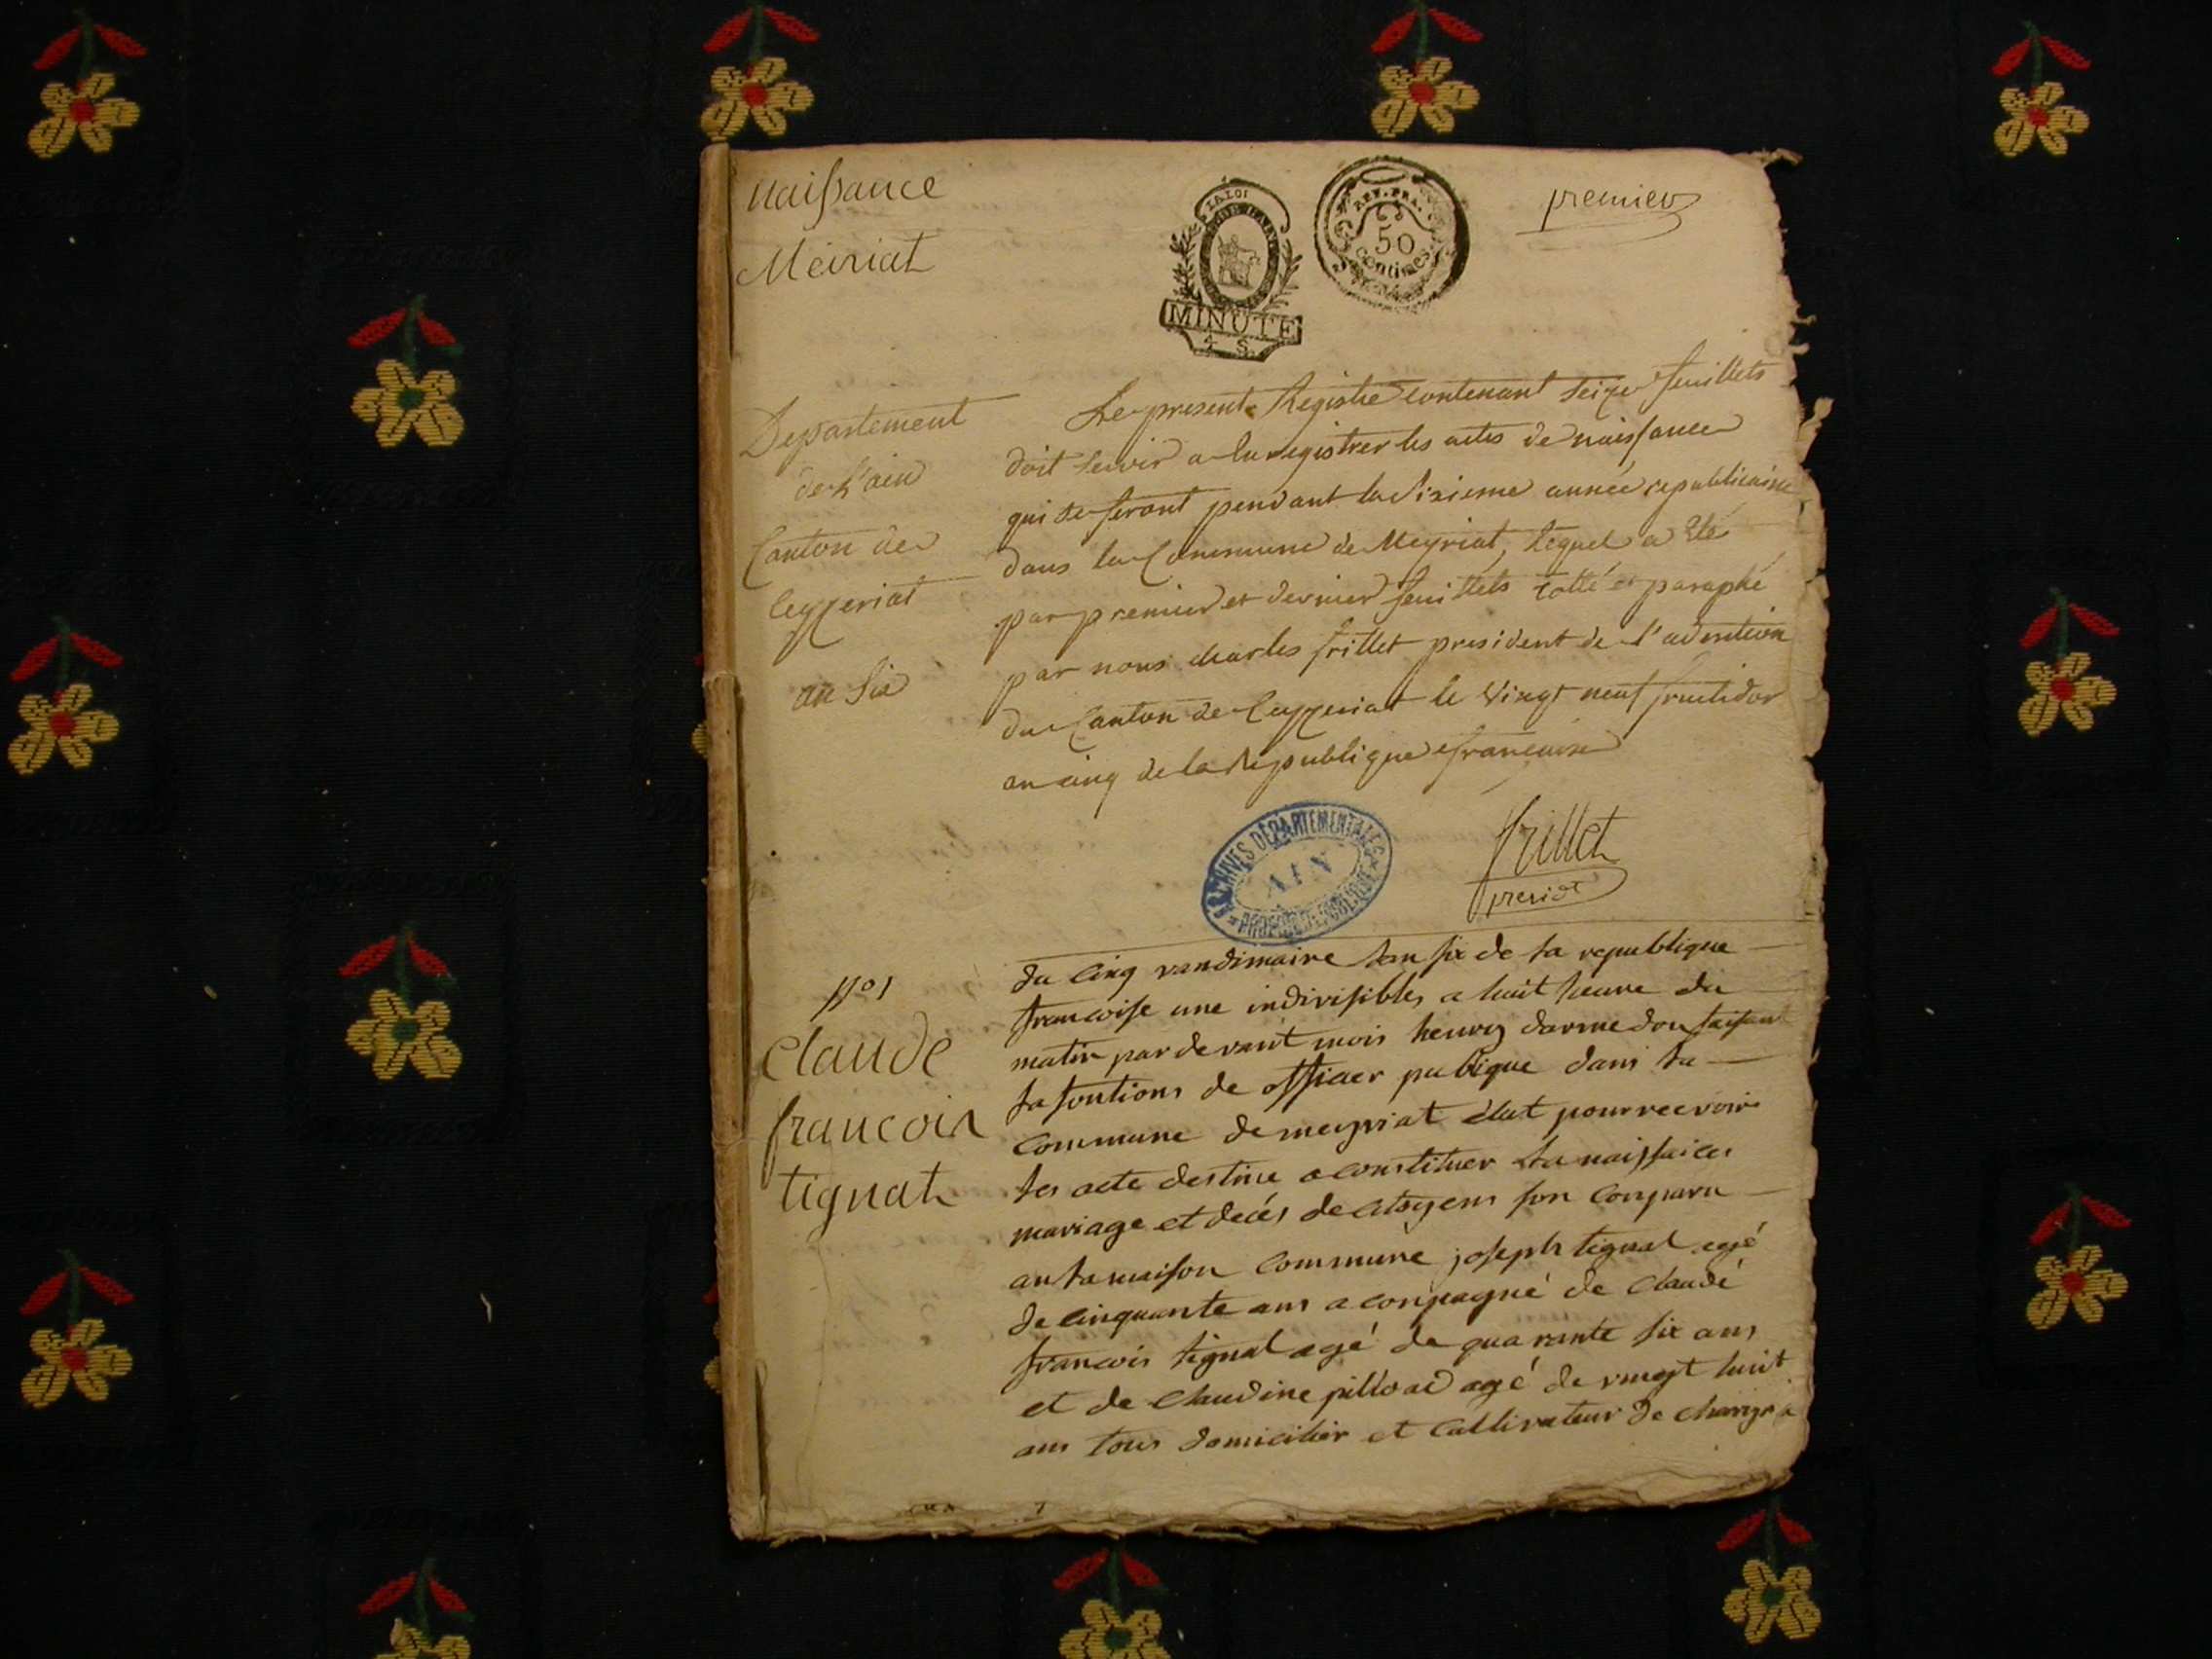 naissance
Meiriat
LA LOI
MINUTE
50
centimes
premier
Departement
de l'ain
Canton de
Ceyzeriat
an six
Le present Registre contenant seize feuillets
doit servir a enregistrer les actes de naissance
qui se feront pendant la sixieme année republicaine
dans la Commune de Meyriat, lequel a été
par premier et dernier feuillets cotté et paraphé
par nous charles frillet president de l'adm̃tion
du Canton de Ceyzeriat le vingt neuf fructidor
an cinq de la Republique francaise
ARCHIVES DÉPARTEMENTALES
AIN
PROPRIÉTÉ PUBLIQUE
frillet
presidt
n° 1
claude
francois
tignat
du cinq vandimaire lan six de la republique
francoise une indivisibles a huit heure du
matin par devant mois henry darmedon faisant
la fontions de officier publique dans la
commune de meyriat élut pour recevoir
les acte destine a constituer la naissaices
mariage et decés de citoyens son conparu
an la maison commune joseph tignat agé
de cinquante ans aconpagné de claudé
francois tignat agé de quarante six ans
et de claudine pilloud agé de vingt huit
ans tous domicilier et cultivateur de